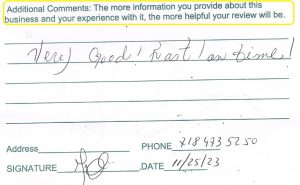 Additional Comments: The more information you provide about this
business and your experience with it, the more helpful your review will be.
Very Good! Fast! on time!
Address
PHONE 718 473 5250
SIGNATURE
DATE 11/25/23